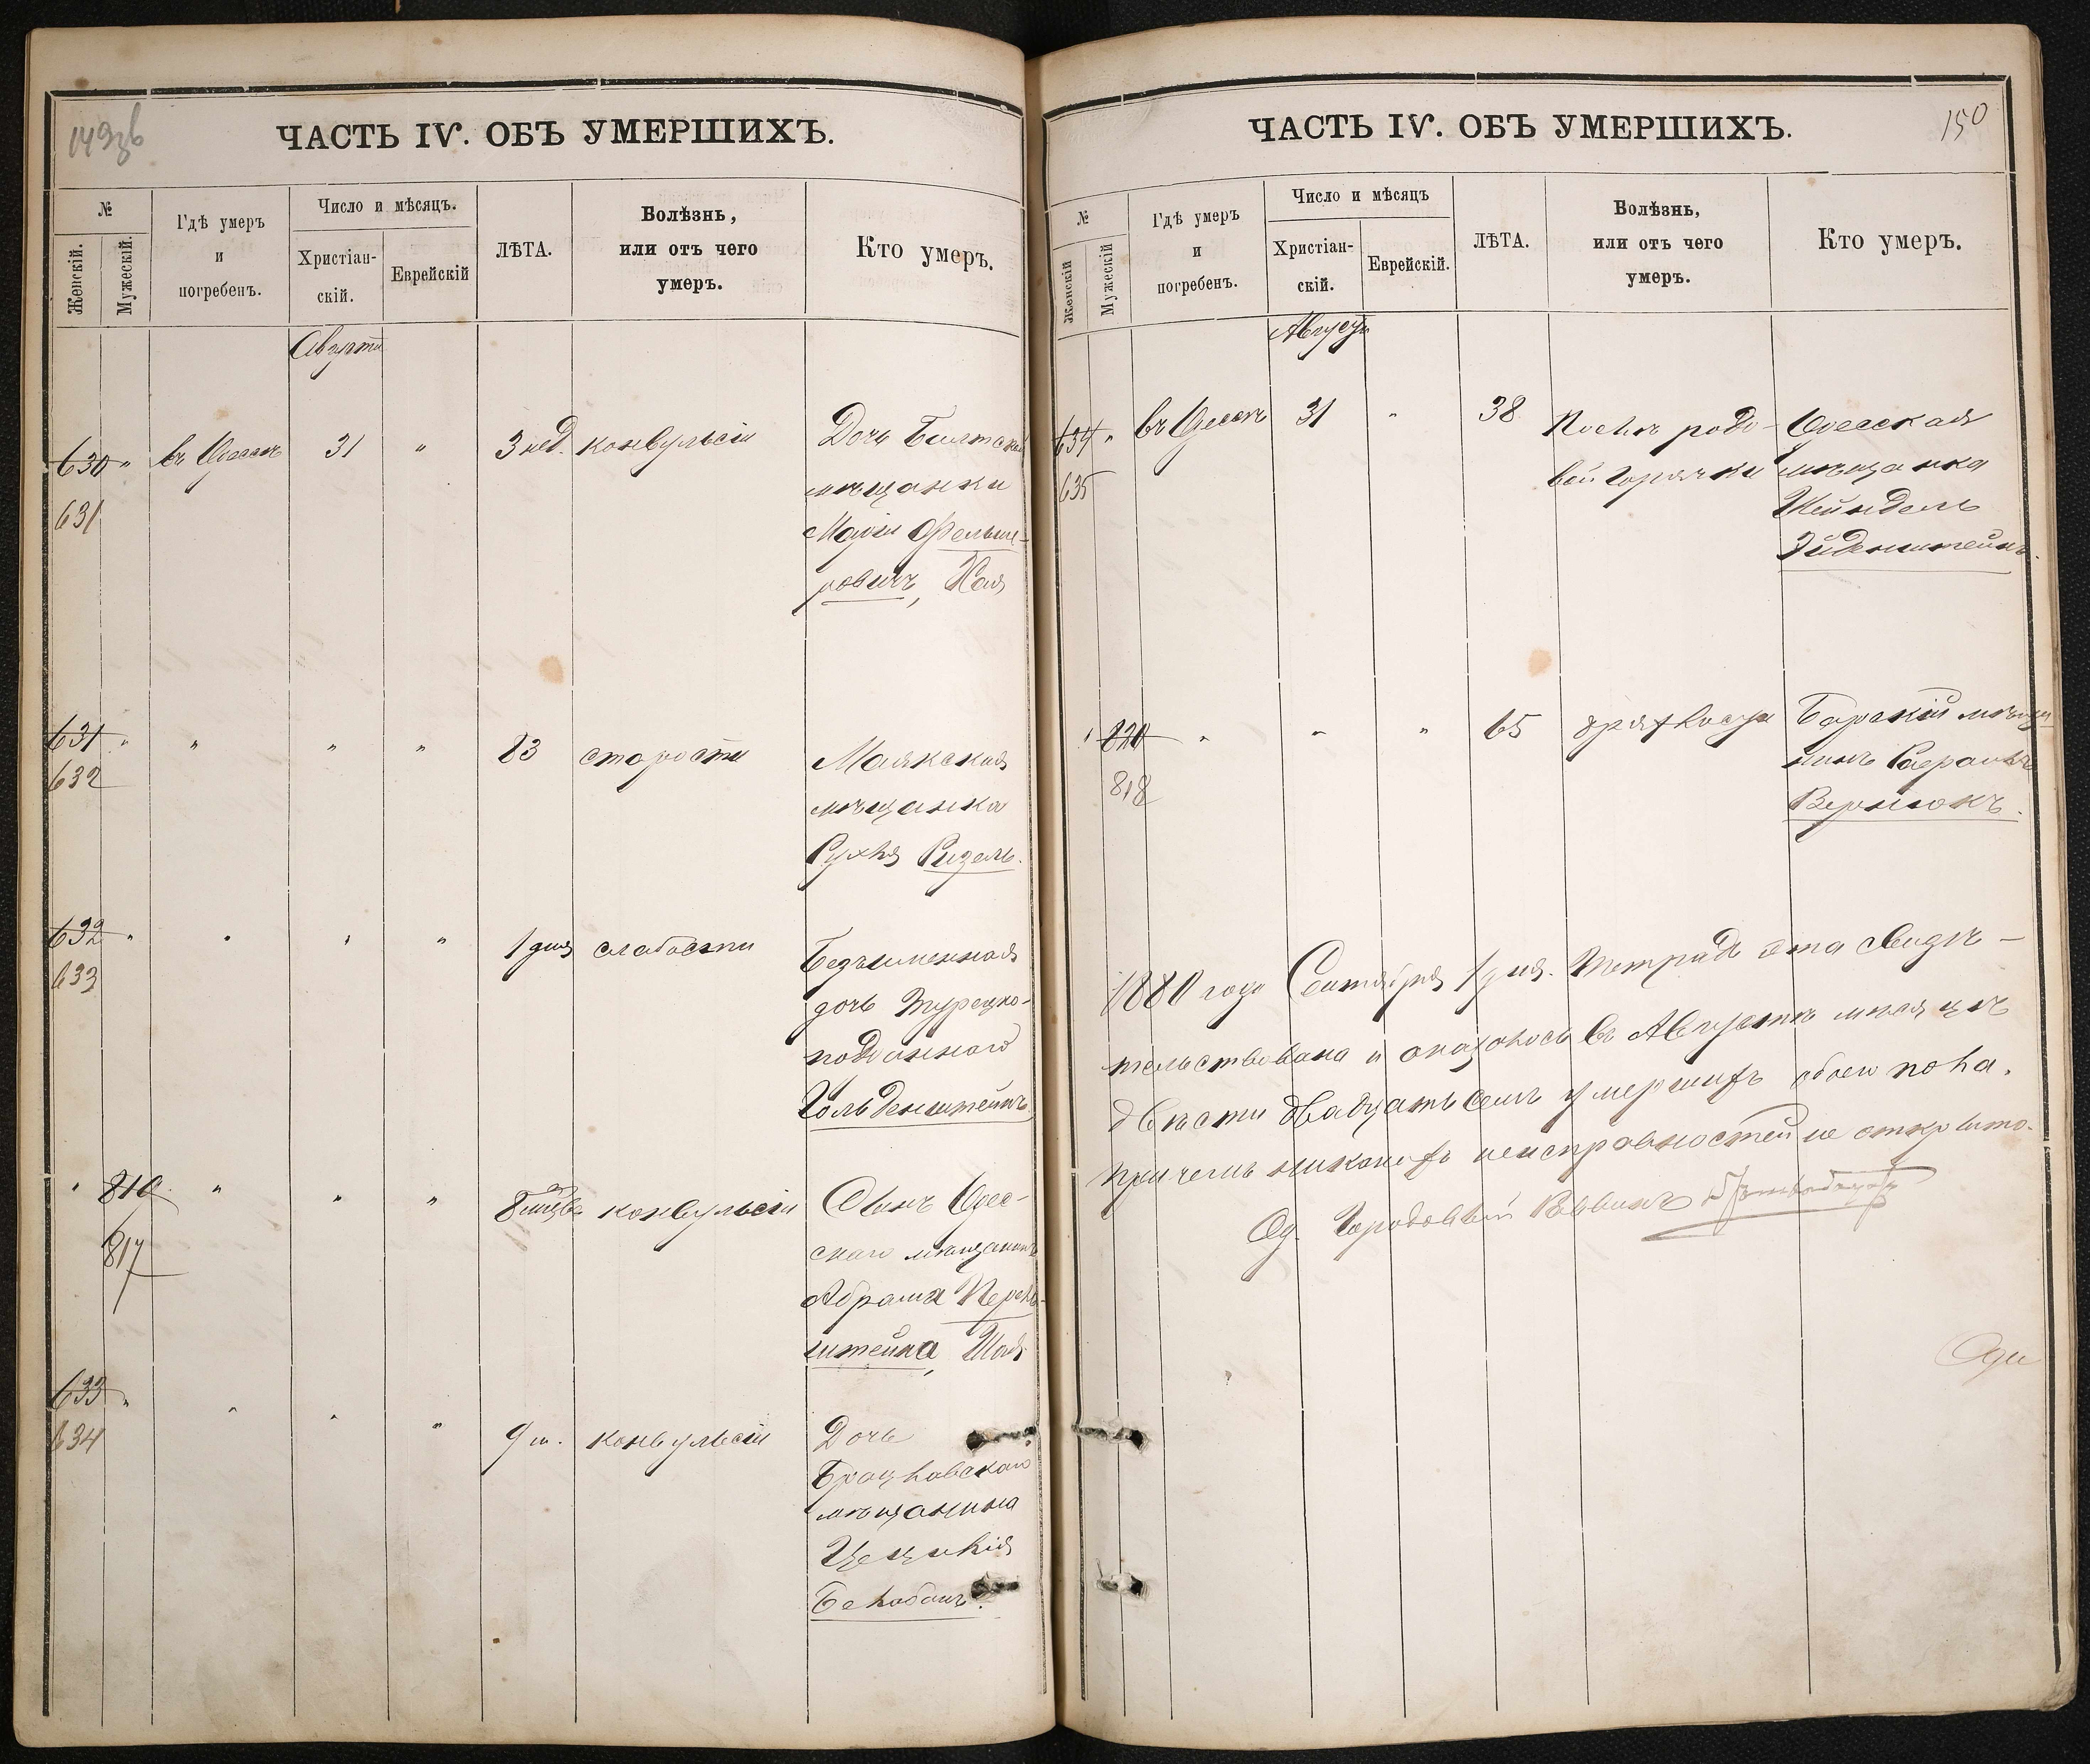 149 об
ЧАСТЬ IV. ОБЪ УМЕРШИХЪ.
№
Женскій.
Мужескій.
Гдѣ умеръ
и
погребенъ.
Число и мѣсяцъ.
Христіан-
скій.
Еврейскій
ЛѢТА.
Болѣзнь,
или отъ чего
умеръ.
Кто умеръ.
Августа
630 " въ Одессѣ 31 " 3 нед. конвульсіи Дочь Балтской
631 мѣщанки
Маріи Фельше-
ровичъ, Хая
631 " " " " 83 старости Маякская
632 мѣщанка
Рухля Ризель.
632 " " " " 1 дня слабости Безъименная
633 дочь Турецко-
подданнаго
Гольденштейнъ
" 819 " " " 8 мѣс. конвульсіи Сынъ Одес-
817 скаго мѣщанина
Абрама Перель-
штейна, Шая
633 " " " " 9 м. конвульсіи Дочь
634 Брацлавскаго
мѣщанина
150
ЧАСТЬ IV. ОБЪ УМЕРШИХЪ.
№
Женскій
Мужескій
Гдѣ умеръ
и
погребенъ.
Число и мѣсяцъ
Христіан-
скій.
Еврейскій.
ЛѢТА.
Болѣзнь,
или отъ чего
умеръ.
Кто умеръ.
Августа
634 " въ Одессѣ 31 " 38 Послѣ родо- Одесская
635 вой горячки мѣщанка
Шейндель
Эйденштейнъ.
" 820 " " " 65 дряхлости Барскій мѣща-
818 нинъ Сераль
Вернюкъ.
1880 года Сентября 1 дня. Тетрадь эта свидѣ-
тельствована и оказалось въ Августѣ мѣсяцѣ
двѣсти двадцать семь умершихъ обоего пола,
причемъ никакихъ неисправностей не открыто.
Од. Городовой Раввинъ